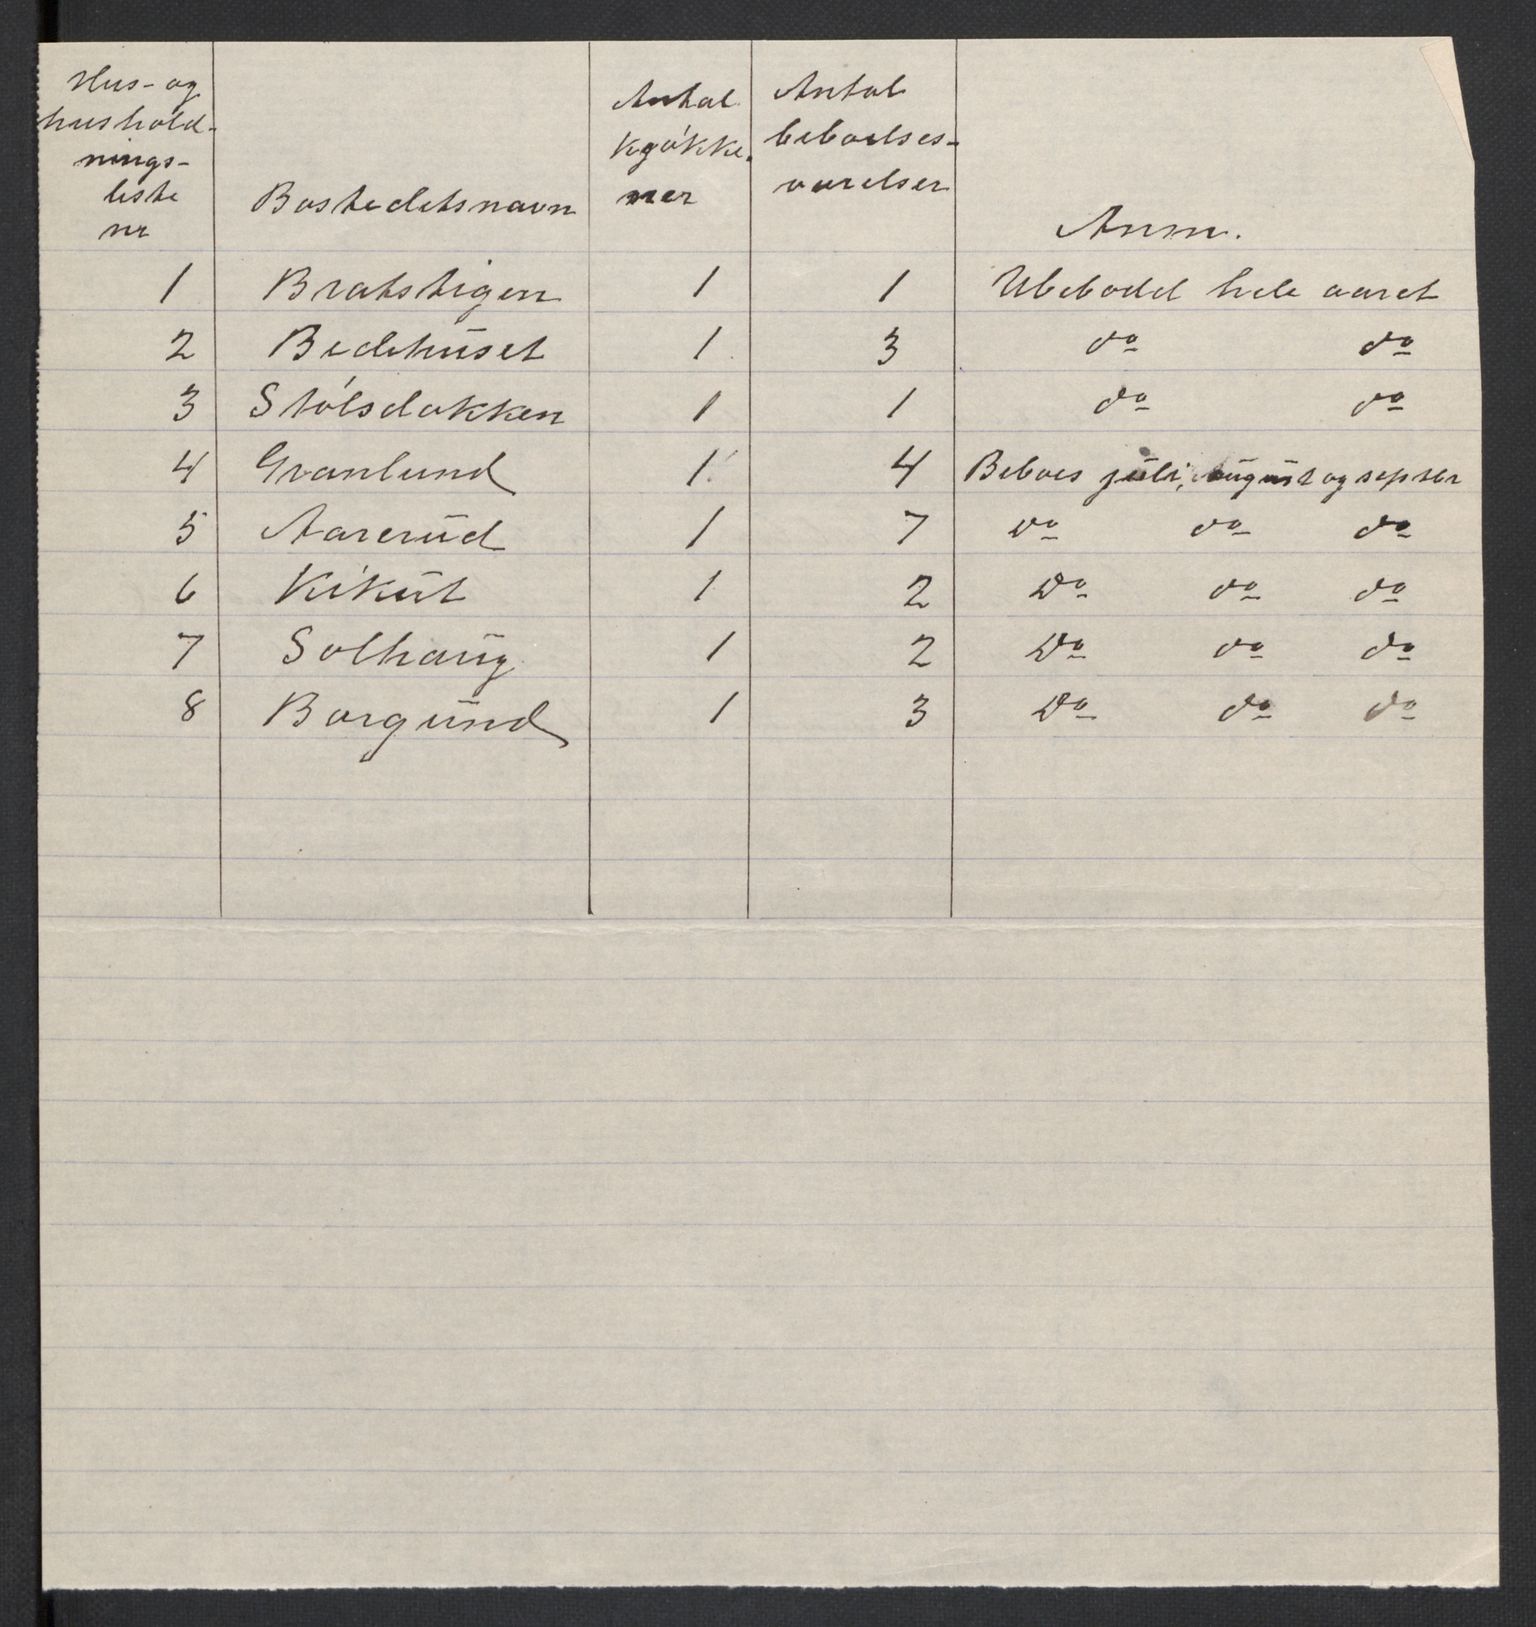 Hus- og hushold-nings-liste nr | Bostedetsnavn | Antal kjøkke-ner | Antal beboelses-værelser | Anm.
1 | Bratstigen | 1 | 1 | Ubebodd hele aaret
2 | Bedehuset | 1 | 3 | do do
3 | Stølsdokken | 1 | 1 | do do
4 | Granlund | 1 | 4 | Beboes juli, August og septbr
5 | Aarerud | 1 | 7 | do do do
6 | Kikut | 1 | 2 | Do do do
7 | Solhaug | 1 | 2 | Do do do
8 | Borgund | 1 | 3 | Do do do